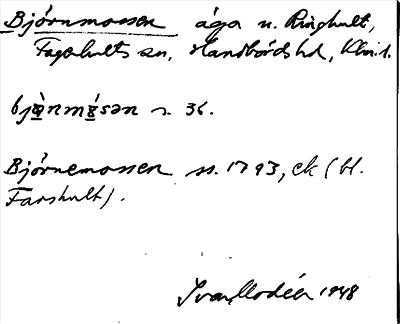 Björnmossen äga u. Ringhult,
Fagerhults sn, Handbörds hd, Klm.l.
s. 36.
Björnemossen ss. 1793, ek (bl.
Farshult).
Ivar Modéer 1948